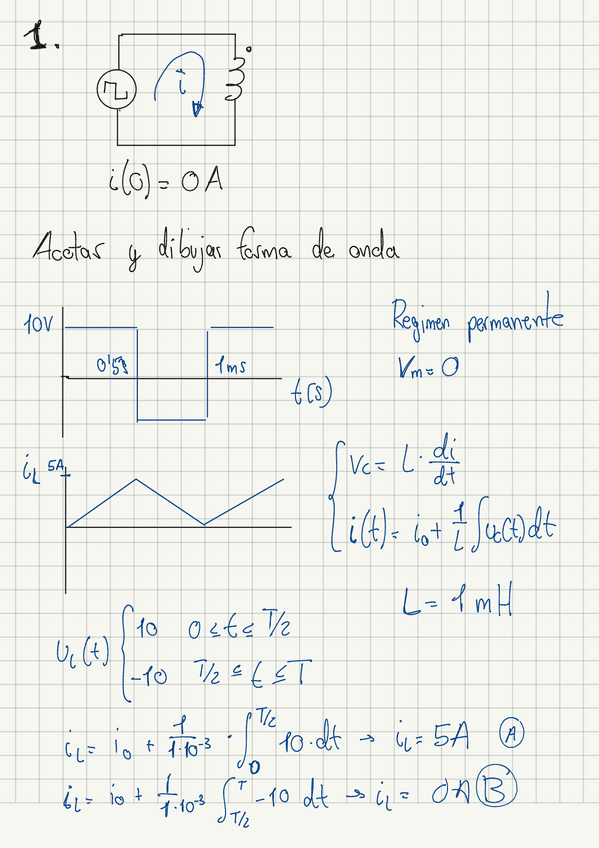 1.
i
i(0) = 0A
Acotar y dibujar forma de onda
10V
0'5s
1ms
t(s)
Regimen permanente
Vm = 0
iL 5A
Vc = L · di/dt
i(t) = i0 + 1/L ∫ Uc(t) dt
L = 1 mH
UL(t) { 10 0 ≤ t ≤ T/2
-10 T/2 ≤ t ≤ T
iL = i0 + 1/1·10^-3 · ∫0^T/2 10·dt → iL = 5A Ⓐ
iL = i0 + 1/1·10^-3 ∫T/2^T -10 dt → iL = 0A Ⓑ